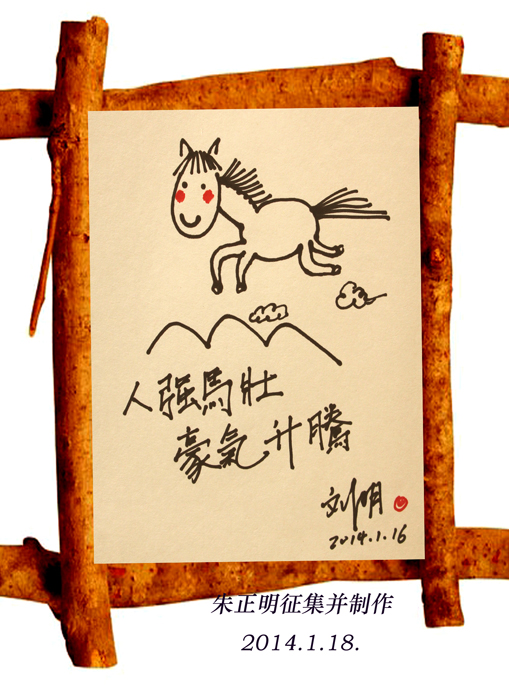 人强馬壮
豪氣升騰
刘明
2014.1.16
朱正明征集并制作
2014.1.18.